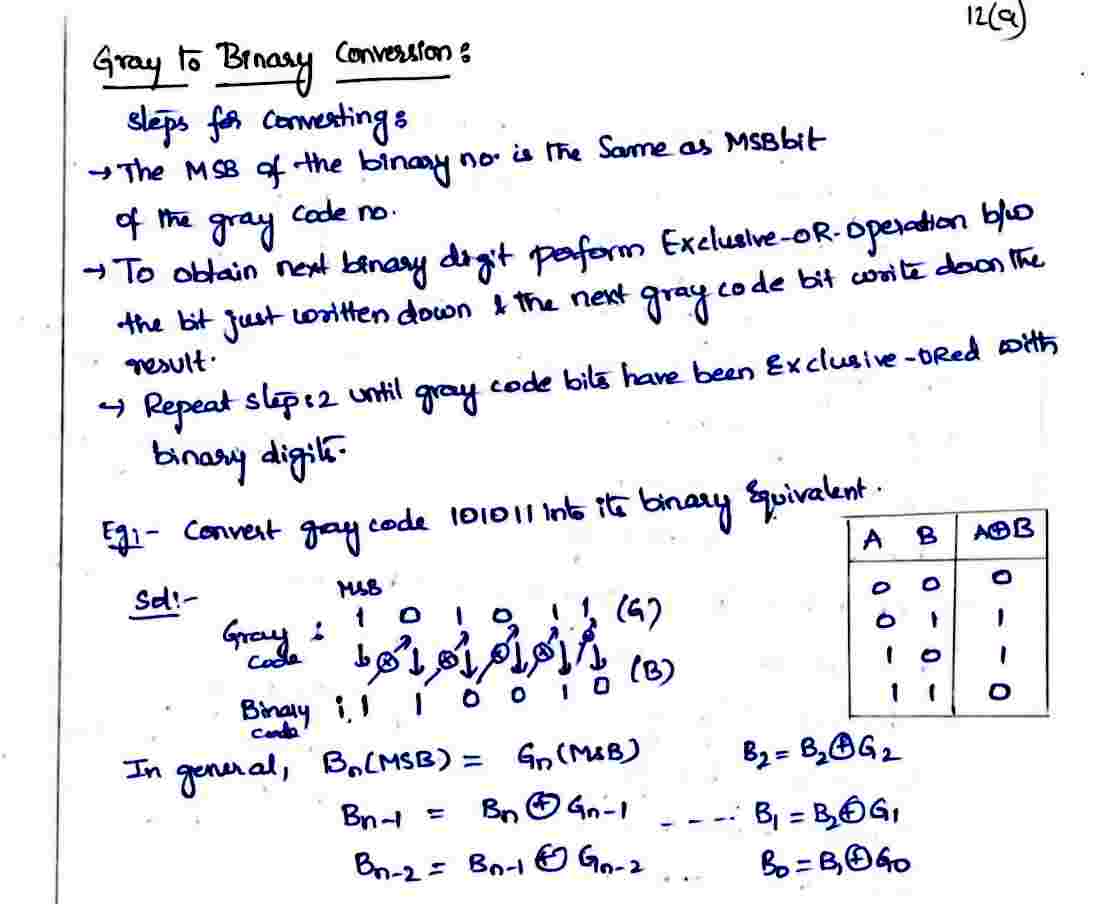 12(a)
Gray To Binary Conversion:
steps for converting:
→ The MSB of the binary no. is the Same as MSB bit
of the gray code no.
→ To obtain next binary digit perform Exclusive-OR-operation b/w
the bit just written down & the next gray code bit write down the
result.
→ Repeat step:2 until gray code bits have been Exclusive-ORed with
binary digits.
Eg:- Convert gray code 101011 into its binary Equivalent.
A B A⊕B
0 0 0
0 1 1
1 0 1
1 1 0
Sol:-
MSB
Gray code : 1 0 1 0 1 1 (G)
Binary code : 1 1 0 0 1 0 (B)
In general, Bn(MSB) = Gn(MSB) B2 = B2⊕G2
Bn-1 = Bn ⊕ Gn-1 ---- B1 = B2⊕G1
Bn-2 = Bn-1 ⊕ Gn-2 ... B0 = B1⊕G0